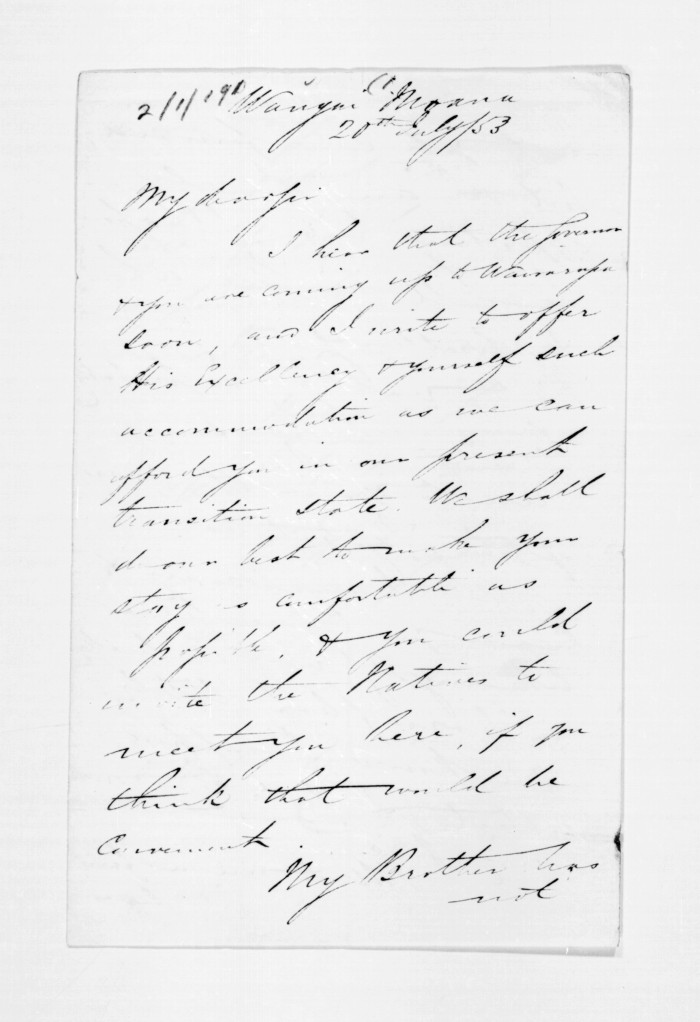 Wangai Moana
20th July/53
My dear Sir
I hear that the Governor
& you are coming up to Wairarapa
soon, and I write to offer
His Excellency & yourself such
accommodation as we can
afford you in our present
transition state. We shall
do our best to make your
stay as comfortable as
possible, & you could
invite the Natives to
meet you here, if you
think that would be
convenient
My Brother has
not